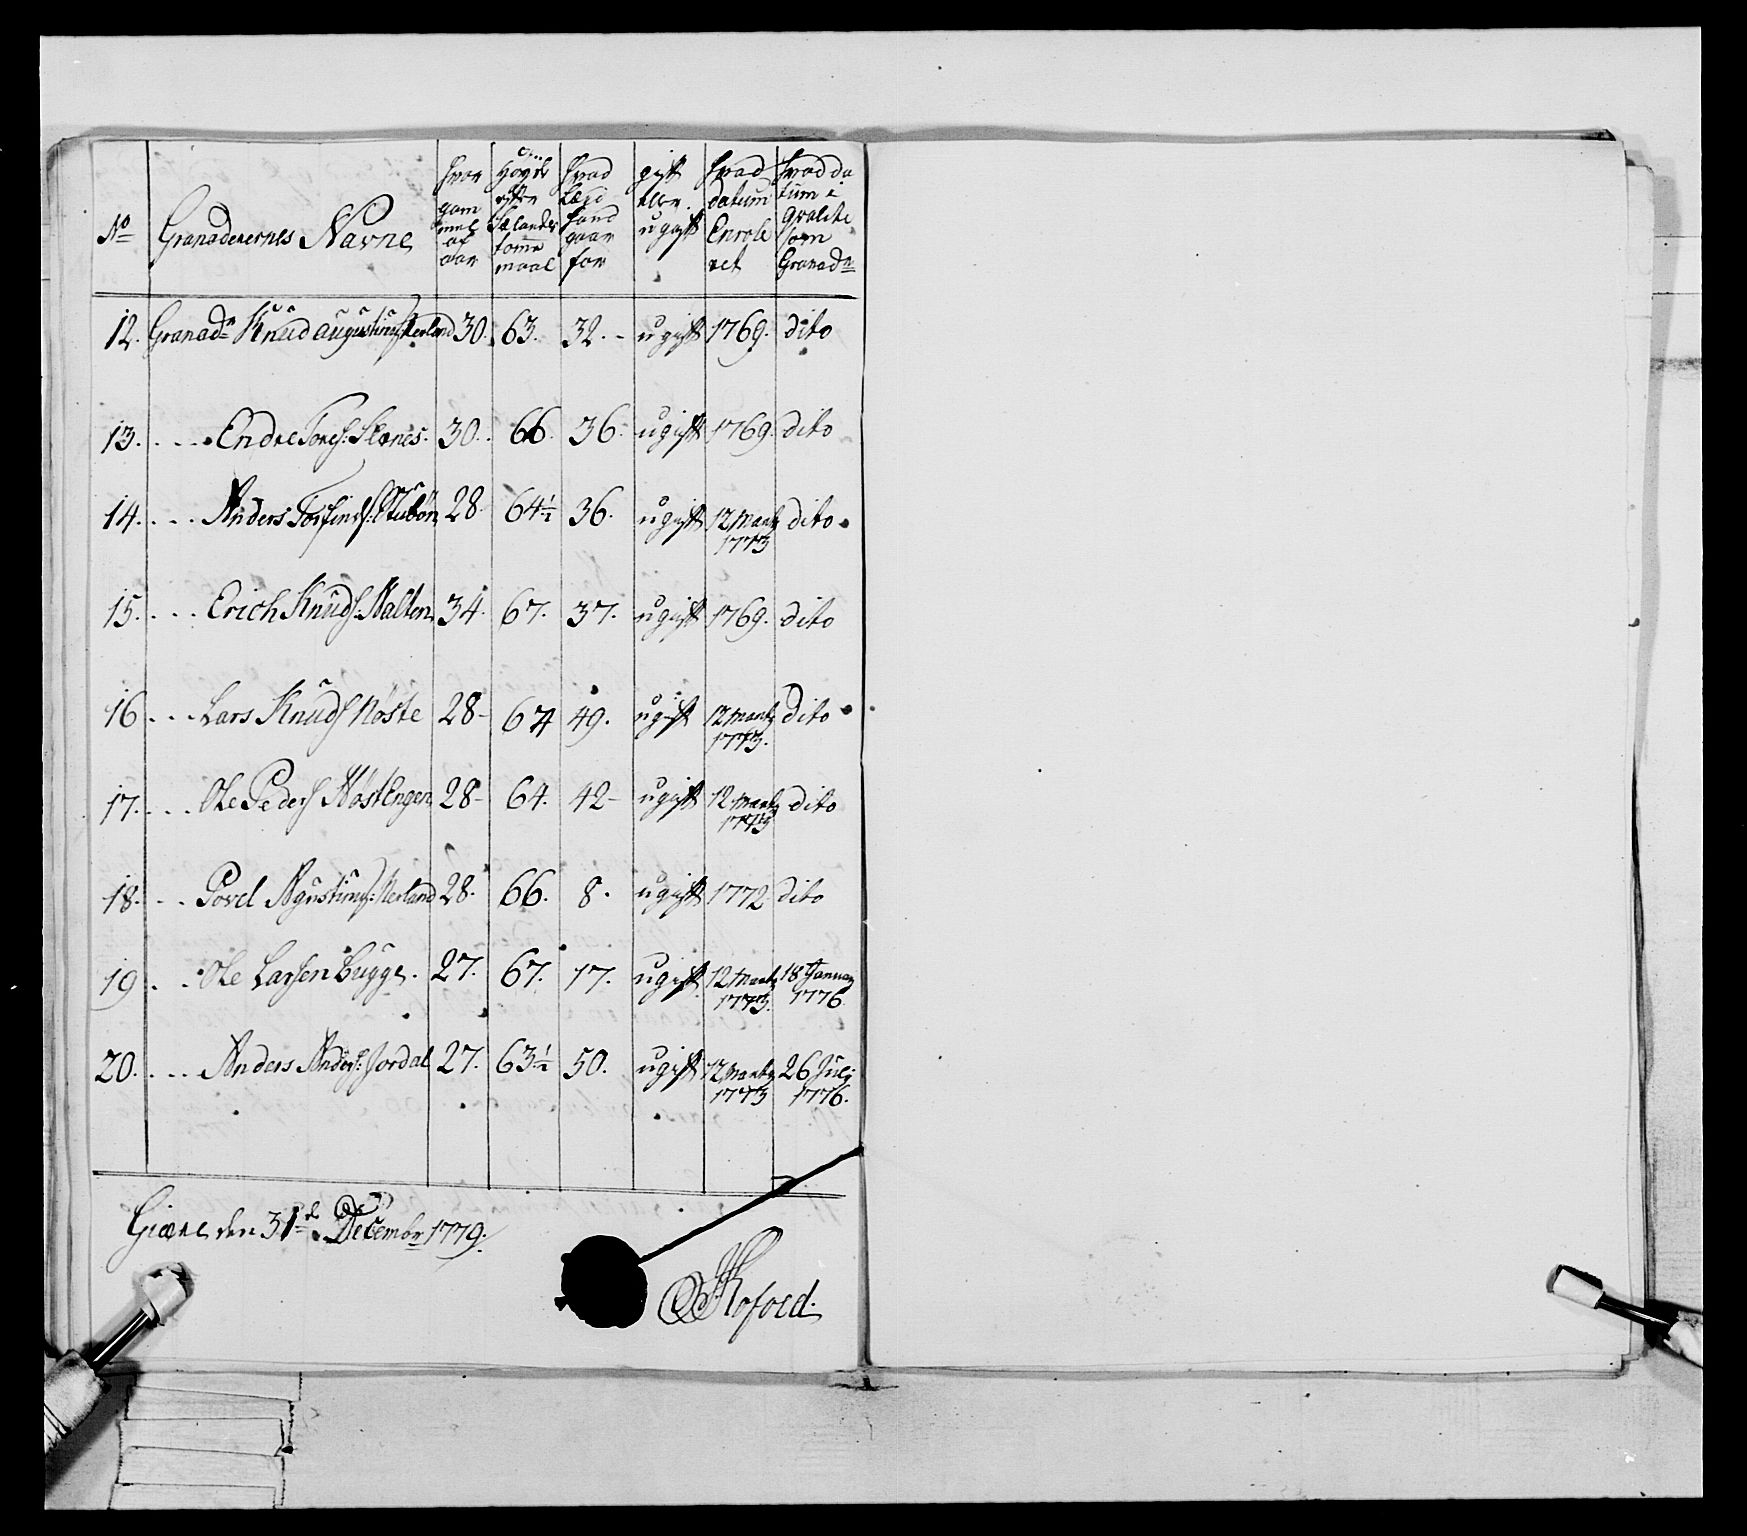 No Granaderernes Navne hvor gam mel af aar Høyde efter Sælandsk tomme maal hvad Lægd hand gaar for gift eller ugift hvad datum Enrole ret hvad da tum i qvalite som Granadr
12. Granadr Knud Augustins Nerland 30. 63. 32. - ugift 1769. dito
13. . . . Endre Tores: 30. 66. 36. ugift 1769. dito
14. . . . Anders Torfinds: Stubøn 28. 64½ 36. ugift 12 Martz 1773 dito.
15. . . . Erich Knuds: Malten 34. 67. 37. ugift 1769. dito
16 . . . Lars Knuds Nøste 28- 64 49. ugift 12 Martz 1773. dito
17. . . . Ole Peders Nøstengen 28- 64. 42- ugift 12 Martz 1773 dito
18. . . Povel Agustins: Nerland 28. 66. 8. ugift 1772 dito
19 . . Ole Larsen Bugge. 27. 67. 17. ugift 12 Martz 1773. 18 Januar 1776
20. . . . Anders Anders: Jordal 27. 63½ 50. ugift 12 Martz 1773 26 Julj 1776.
Giære den 31te Decembr 1779.
Kofoed.